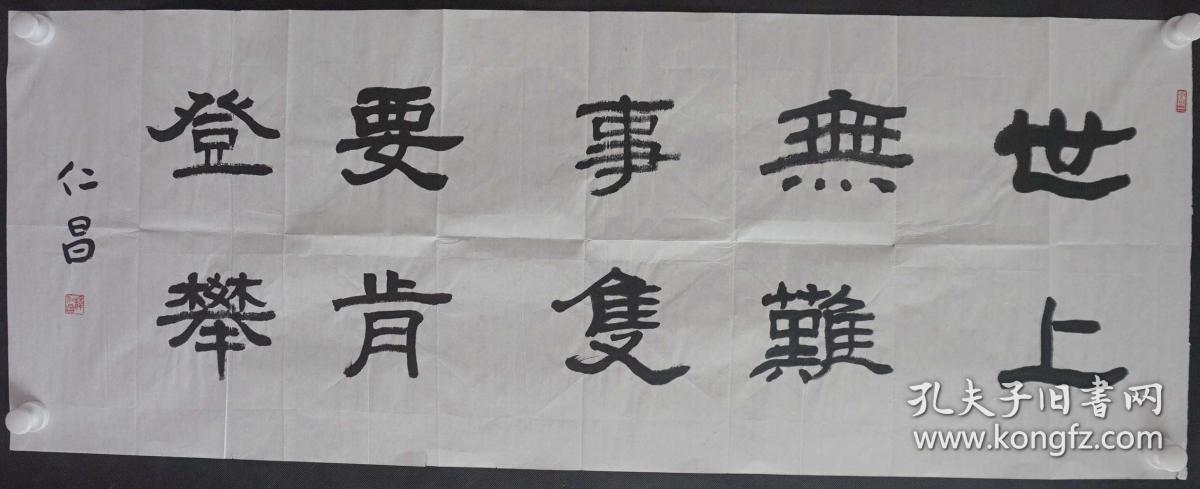 世上
無難
事隻
要肯
登攀
仁昌
孔夫子旧书网
www.kongfz.com